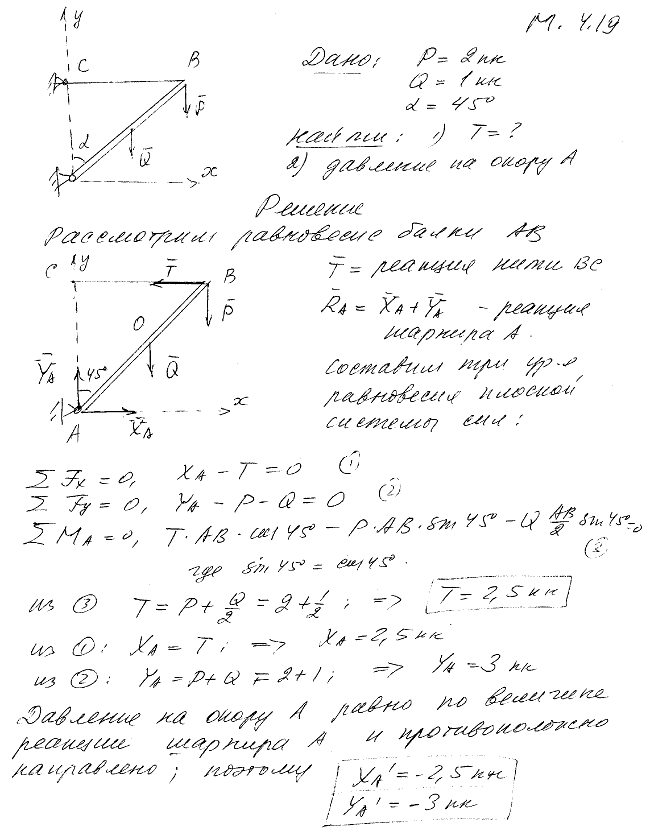 М. 4.19
y
C
B
P̄
α
Q̄
x
Дано: P = 2 кН
Q = 1 кН
α = 45°
найти: 1) T = ?
2) давление на опору A
Решение
Рассмотрим равновесие балки AB
C y T̄ B
P̄
O
Ȳ_A 45° Q̄
x
A X̄_A
T̄ = реакция нити BC
R̄_A = X̄_A + Ȳ_A - реакция
шарнира A.
составим три ур-я
равновесия плоской
системы сил:
∑ Fx = 0, X_A - T = 0 (1)
∑ Fy = 0, Y_A - P - Q = 0 (2)
∑ M_A = 0, T · AB · cos 45° - P · AB · sin 45° - Q AB/2 sin 45° = 0
(3)
где sin 45° = cos 45°.
из (3) T = P + Q/2 = 2 + 1/2 ; => T = 2,5 кН
из (1): X_A = T ; => X_A = 2,5 кН
из (2): Y_A = P + Q = 2 + 1 ; => Y_A = 3 кН
Давление на опору A равно по величине
реакции шарнира A и противоположно
направлено ; поэтому X_A' = -2,5 кН
Y_A' = -3 кН